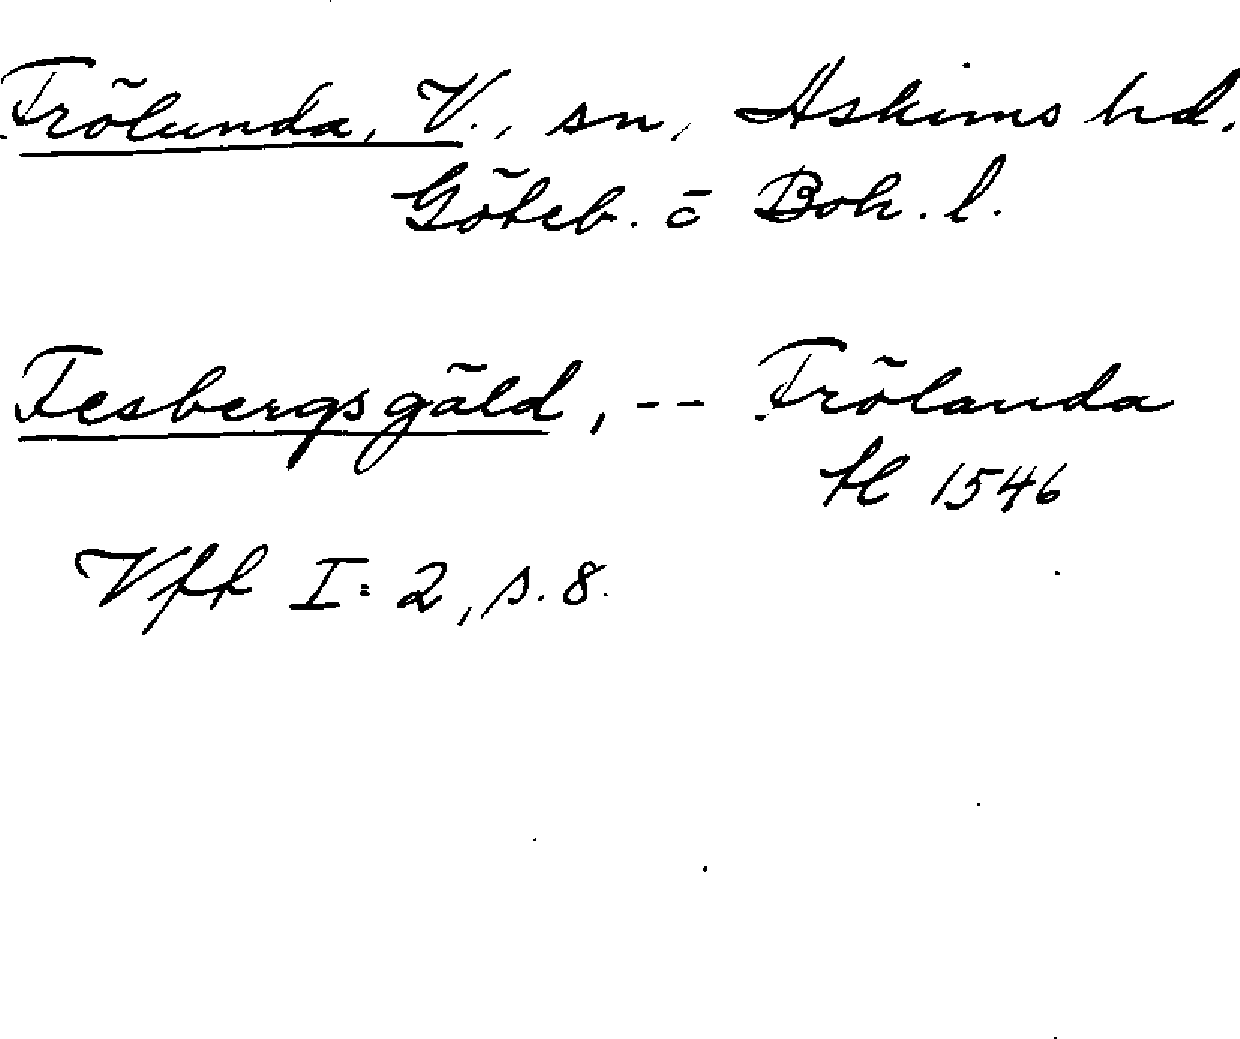 Frölunda, V., sn, Askims hd.
Göteb. o Boh. l.
Fesbergsgäld, -- Frölanda
tl 1546
Vfft I: 2, s. 8.